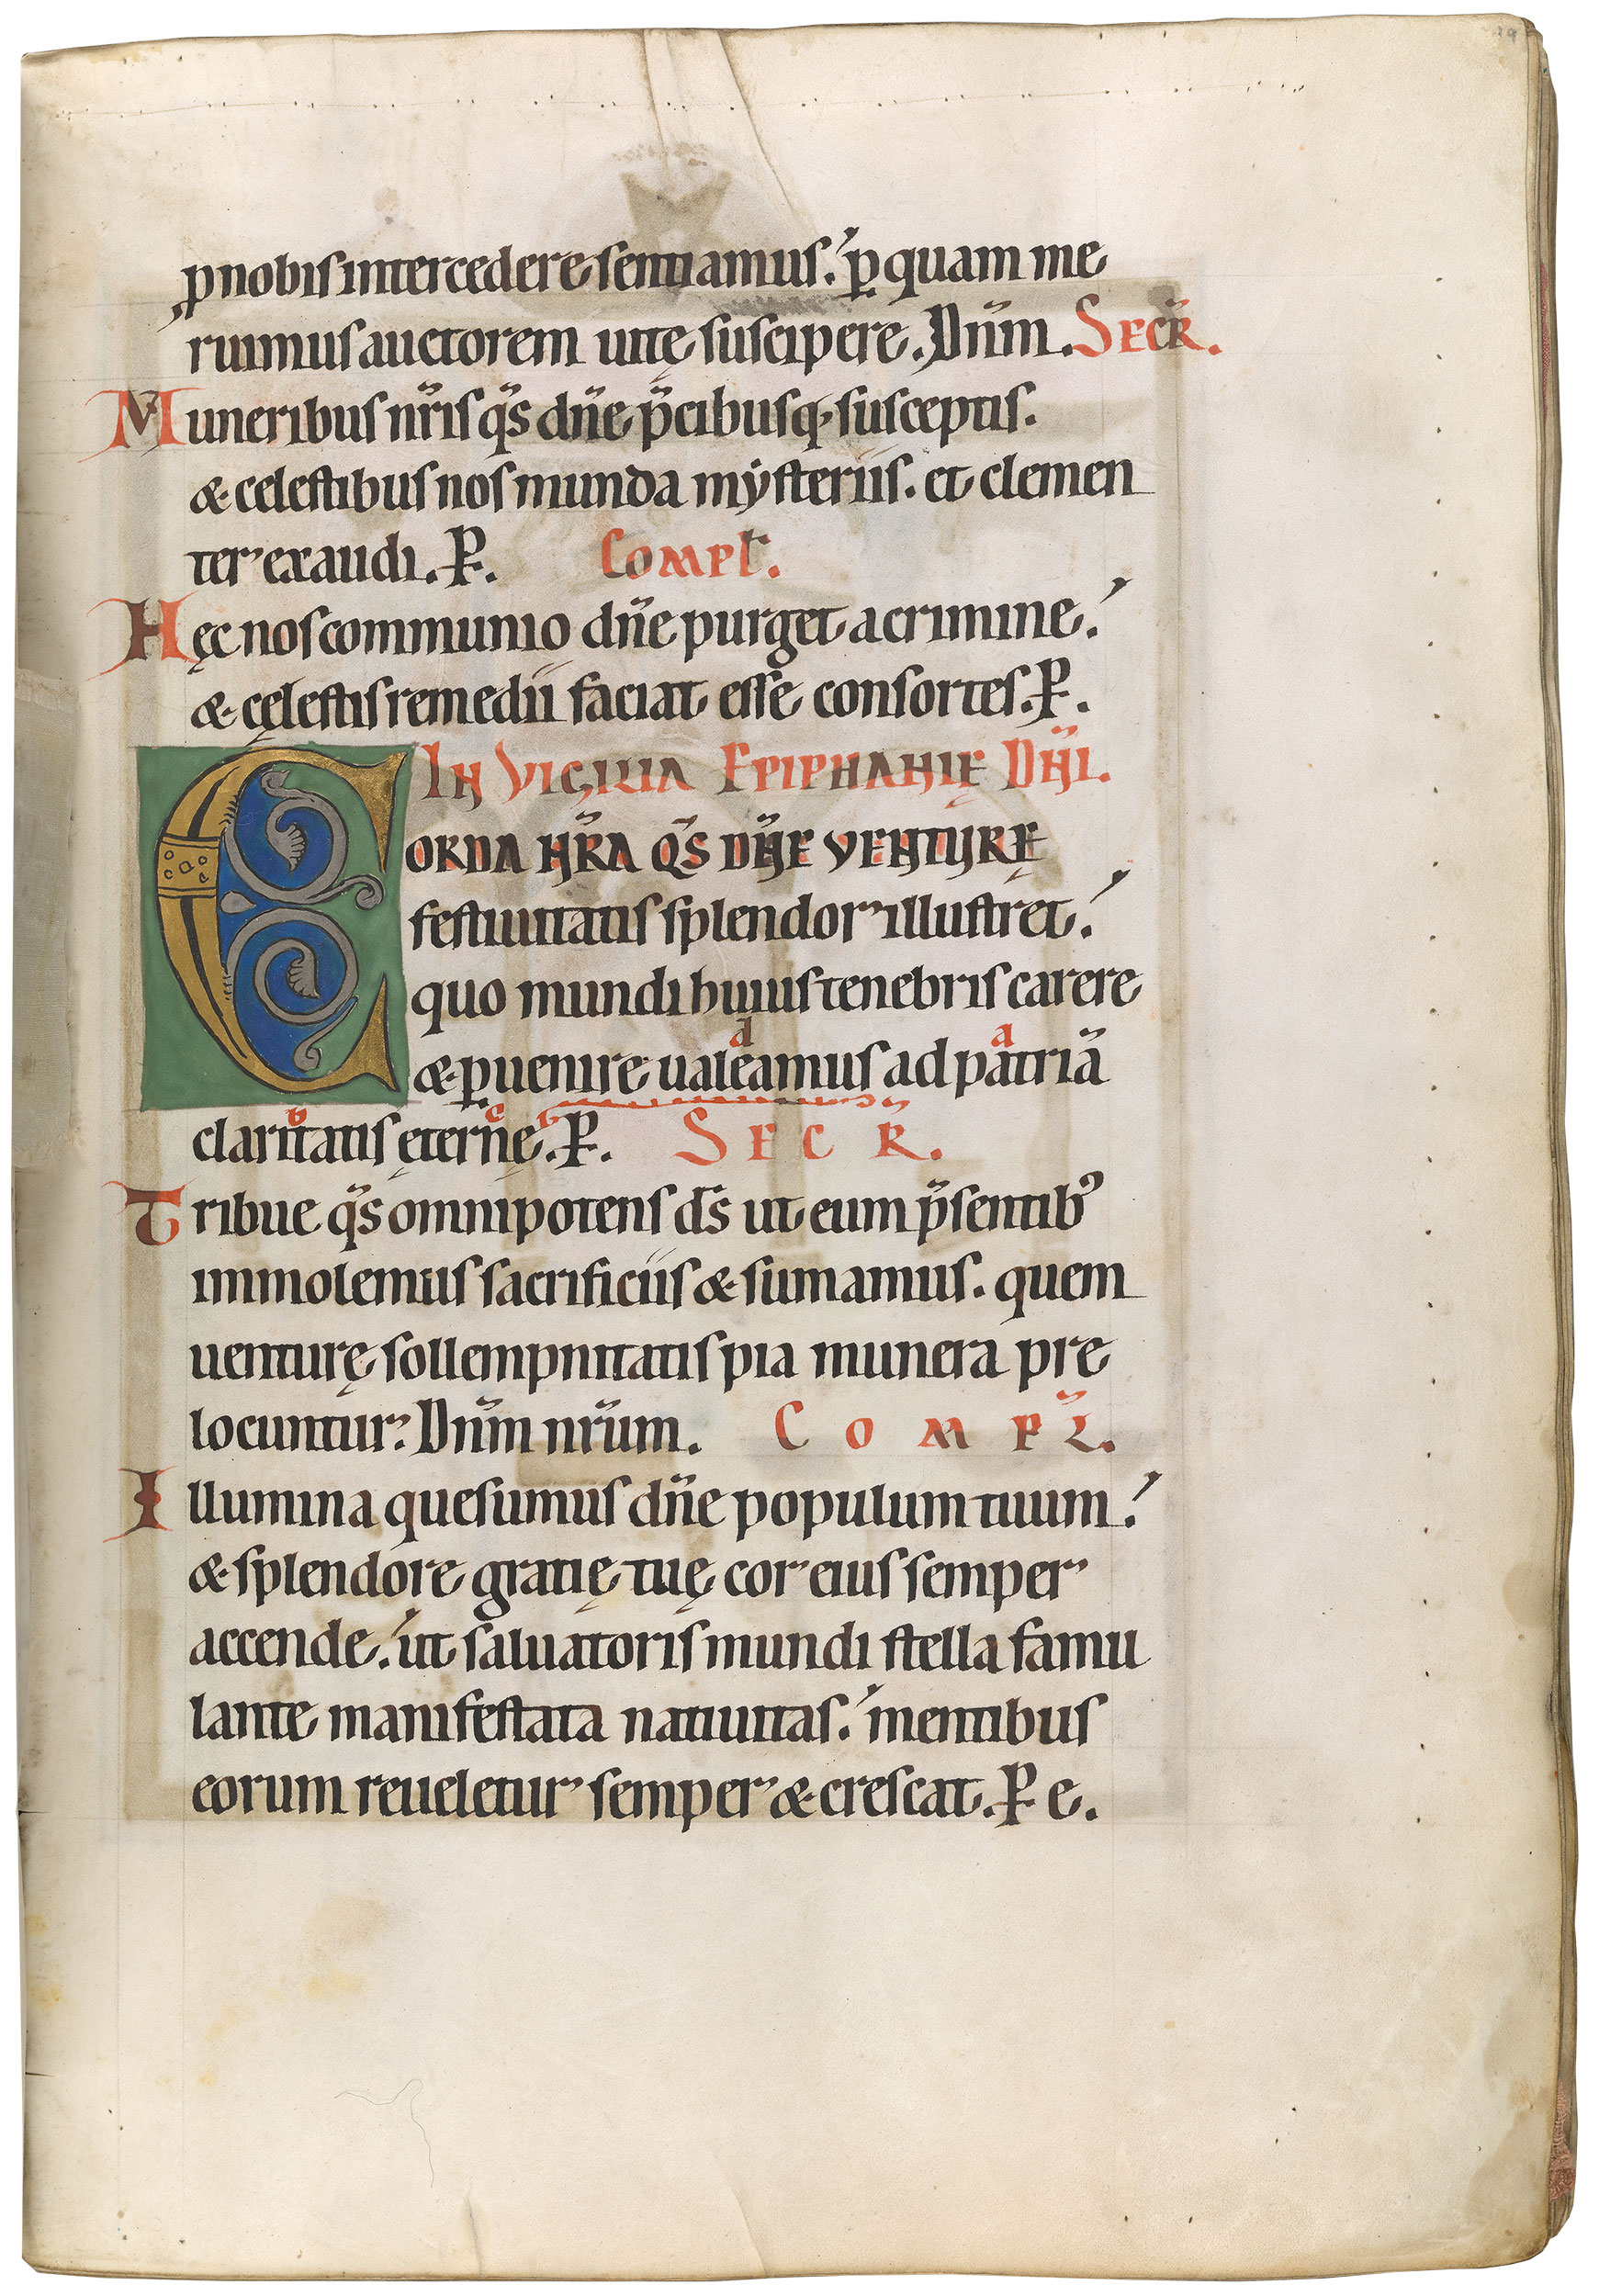 19
ꝓ nobis intercedere sentiamus. ꝑ quam me
ruimus auctorem uitę suscipere. Dn̄m. SECR̄.
Muneribus nr̄is qs̄ dn̄e p̄cibusq; susceptis.
& celestibus nos munda mẏsteriis. et clemen
ter exaudi. P. COMPL̄.
Hęc nos communio dn̄e purget a crimine.
& cęlestis remedii faciat esse consortes. P.
IN VIGILIA EPIPHANIĘ DN̄I.
CORDA NR̄A QS̄ DN̄E VENTURĘ
festiuitatis splendor illustret.
quo mundi huius tenebris carere
& ꝑuenire ualeamus ad patriā
claritatis ęternę. P. SECR̄.
Tribue qs̄ omnipotens ds̄ ut eum p̄sentibꝰ
immolemus sacrificiis & sumamus. quem
uenturę sollempnitatis pia munera pre
locuntur. Dn̄m nr̄um. COMPL̄.
Illumina quesumus dn̄e populum tuum.
& splendore gratię tuę cor eius semper
accende. ut saluatoris mundi stella famu
lante manifestata natiuitas. mentibus
eorum reueletur semper & crescat. P e.